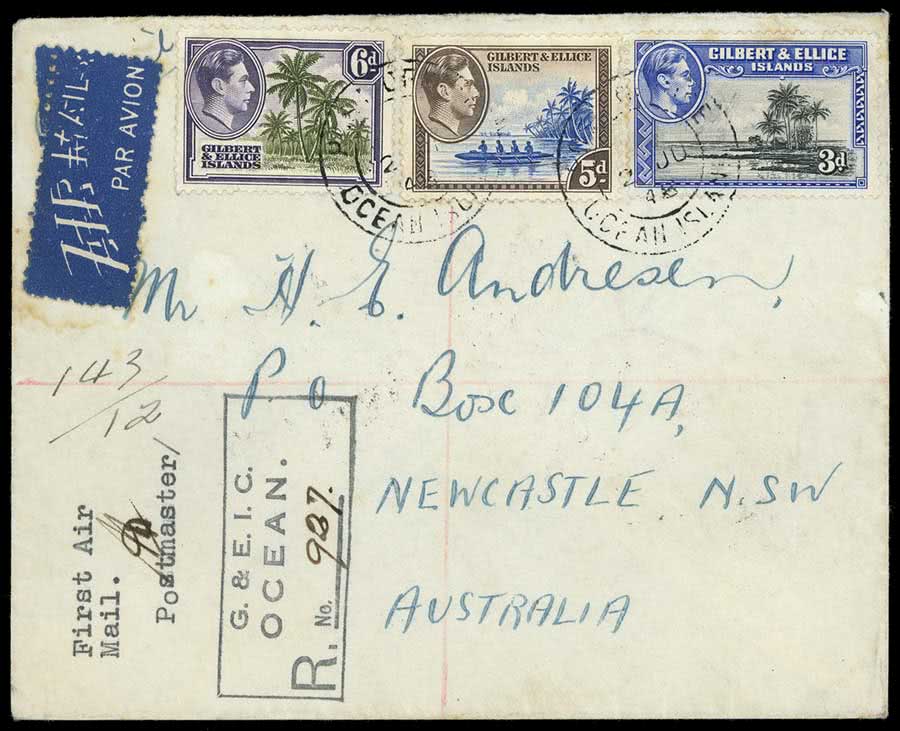 AIR MAIL
PAR AVION
6d
GILBERT
& ELLICE
ISLANDS
GILBERT & ELLICE
ISLANDS
5d
GILBERT & ELLICE
ISLANDS
3d
OCEAN
2
48
OCEAN ISLAND
Mr H. E. Andresen,
P.O Box 104A,
NEWCASTLE N.SW
AUSTRALIA
143/12
First Air
Mail.
Postmaster/
G. & E. I. C.
OCEAN.
R. No. 937.